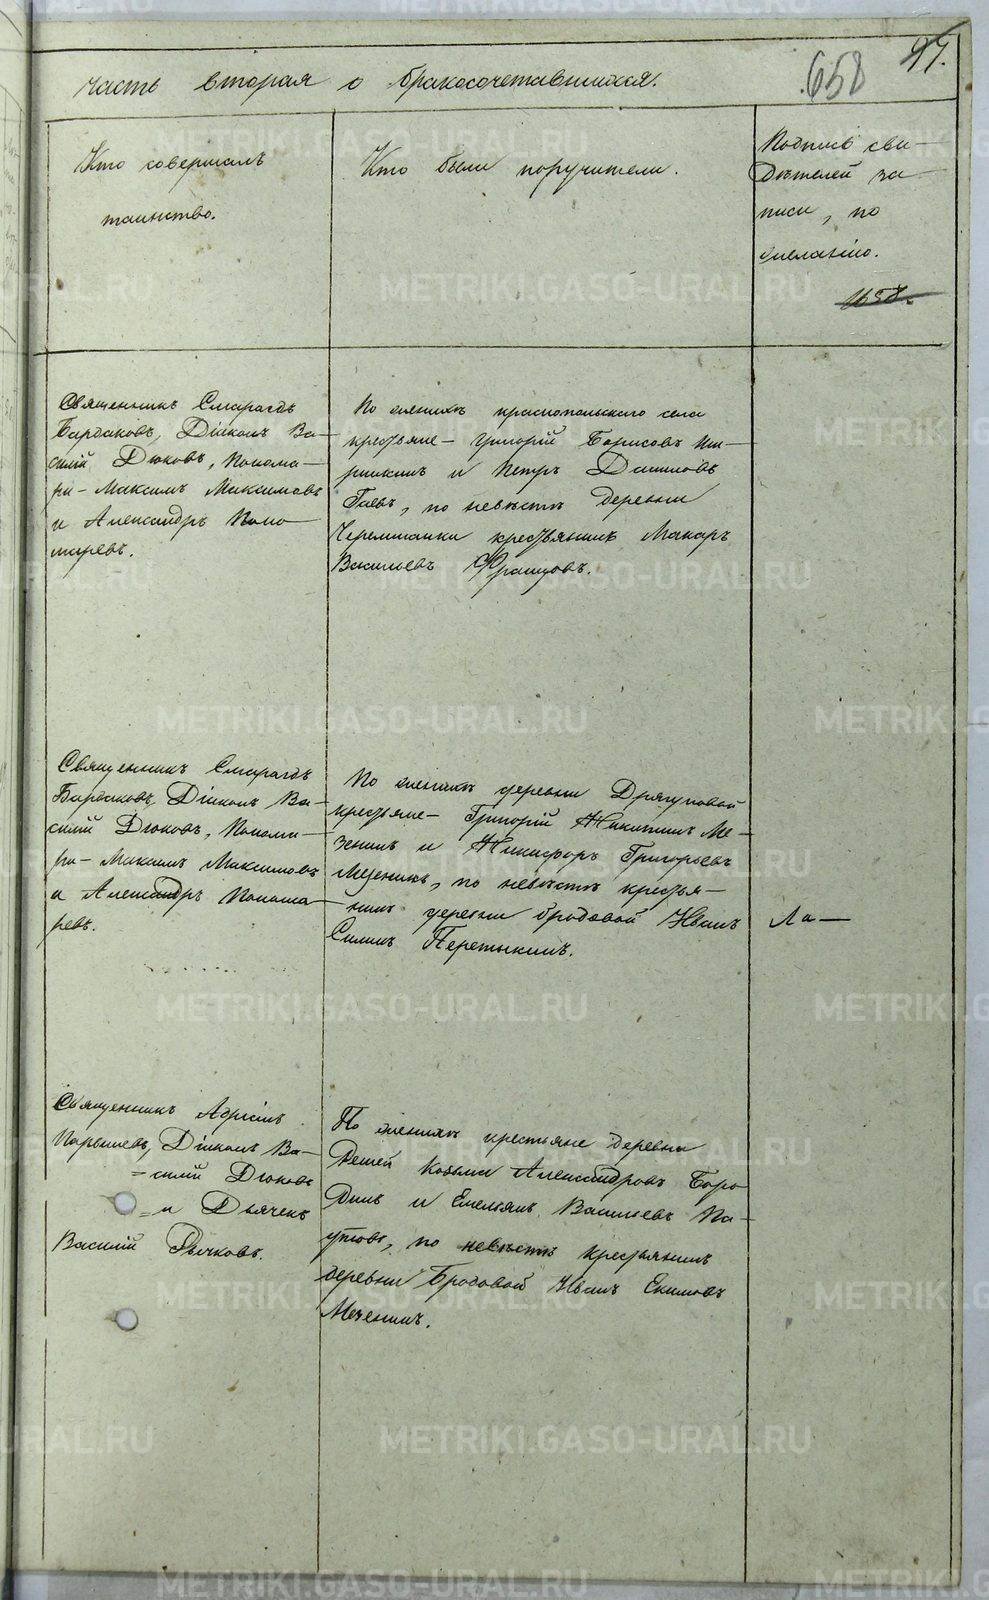 97.
658
часть вторая о бракосочетавшихся.
Кто совершалъ
таинство.
Кто были поручители.
Подпись сви-
дѣтелей за-
писи, по
желанію.
658.
Священникъ Смарагдъ
Бирюковъ, Діаконъ Ва-
силій Дюковъ, Понома-
ри- Максимъ Максимовъ
и Александръ Поно
маревъ.
По женихѣ краснопольскаго села
крестьяне- Григорій Борисовъ
и Петръ Даниловъ
Гаевъ, по невѣстѣ деревни
Черемшанки крестьянинъ Макаръ
Васильевъ Францовъ.
Священникъ Смарагдъ
Діаконъ Ва-
силій Дюковъ, Понома-
ри- Максимъ Максимовъ
и Александръ Понома-
ревъ.
По женихѣ деревни Дрягуновой
крестьяне- Григорій Никитинъ Ме-
зенинъ и Никифоръ Григорьевъ
Мезенинъ, по невѣстѣ крестья-
нинъ деревни бродовой Иванъ
Силинъ Перетыкинъ.
Ла-
Священникъ Адріанъ
Діаконъ Ва-
=силій Дюковъ
=и Дьячекъ
Василій Бычковъ.
По женихѣ крестьяне деревни
Козьма Александровъ Боро
динъ и Емельянъ Васильевъ Па-
утовъ, по невѣстѣ крестьянинъ
деревни Бродовой Иванъ Екимовъ
Мезенинъ.
METRIKI.GASO-URAL.RU